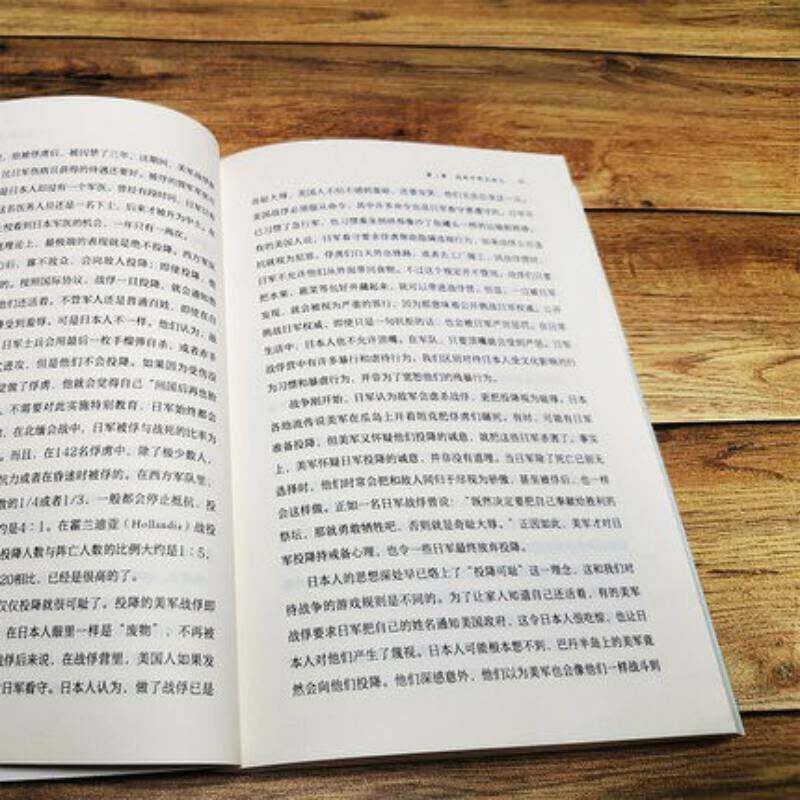 他被俘虏后，被囚禁了三年，这期间，美军战俘
民日军伤病员获得的待遇还要好。被俘的盟军
是日本人却没有一个军医。曾经有段时间，日军只
名医务人员还是一名下士，后来才被升为中士。在
投看到日本军医的机会，一年只有一两次。
理论上，最极端的表现就是他不投降。西方军队
后，寡不敌众，会向敌人投降；即使投降，他
按照国际协议，战俘一旦投降，就会通知他
们还活着。不管军人还是普通百姓，即使在自
受到羞辱。可是日本人不一样。他们认为，战
日军士兵会用最后一枚手榴弹自杀，或者赤手
攻，但是他们不会投降。如果因为受伤没
觉做了俘虏，他就会觉得自己“回国后再也抬
不需要对此实施特别教育，日军始终都会
在北缅会战中，日军被俘与战死的比率为
而且，在142名俘虏中，除了极少数人，
沉力或者在昏迷时被俘的。在西方军队里，
数的1/4或者1/3，一般都会停止抵抗，投
约是4：1。在霍兰迪亚（Hollandia）战役
投降人数与阵亡人数的比例大约是1：5，
20相比，已经是很高的了。
仅仅投降就很可耻了。投降的美军战俘即
在日本人眼里一样是“废物”，不再被
战俘后来说，在战俘营里，美国人如果发
日军看守。日本人认为，做了战俘已是
奇耻大辱，美国人不怕不感到羞耻，还要发笑，他们无法忍受这一点。
美国战俘必须服从命令，其中许多命令也是日军看守要遵守的。日军
习惯了急行军，也习惯乘坐
在的美国人说，日军看守要求俘虏们隐瞒违规行为，如果战俘公开违
抗就视为犯罪。俘虏们白天外出修路，或者去工厂做工，因此战俘时，
日军不允许他们从外面带回食物。不过这个规定并不管用，战俘们只要
把水果、蔬菜等包好并藏起来，就可以带进战俘营。但是，一旦被日军
发现，就会被视为严重的罪行，因为那意味着公开挑战日军权威。公开
挑战日军权威，即使只是一句抗拒的话，也会被日军严厉惩罚。在日常
生活中，日本人也不允许顶嘴，在军队，只要顶嘴就会受到严惩。日军
战俘营中有许多暴行和虐待行为。我们区别对待日本人受文化影响的行
为习惯和暴虐行为，并非为了宽恕他们的残暴行为。
战争刚开始，日军认为敌军会虐杀战俘，更把投降视为耻辱。日本
各地流传说美军在瓜岛上开着坦克把俘虏们碾死。有时，可能有日军
准备投降，但美军又怀疑他们投降的诚意，就把这些日军杀害了。事实
上，美军怀疑日军投降的诚意，并非没有道理。当日军除了死亡已别无
选择时，他们时常会把和敌人同归于尽视为骄傲，甚至被俘后，也一样
会这样做。正如一名日军战俘曾说：“既然决定要把自己奉献给胜利的
祭坛，那就勇敢牺牲吧，否则就是奇耻大辱。”正因如此，美军才对日
军投降持戒备心理，也令一些日军最终放弃投降。
日本人的思想深处早已烙上了“投降可耻”这一理念，这和我们对
待战争的游戏规则是不同的。为了让家人知道自己还活着，有的美军
战俘要求日军把自己的姓名通知美国政府，这令日本人很吃惊，也让日
本人对他们产生了蔑视。日本人可能根本想不到，巴丹半岛上的美军竟
然会向他们投降。他们深感意外，他们以为美军也会像他们一样战斗到